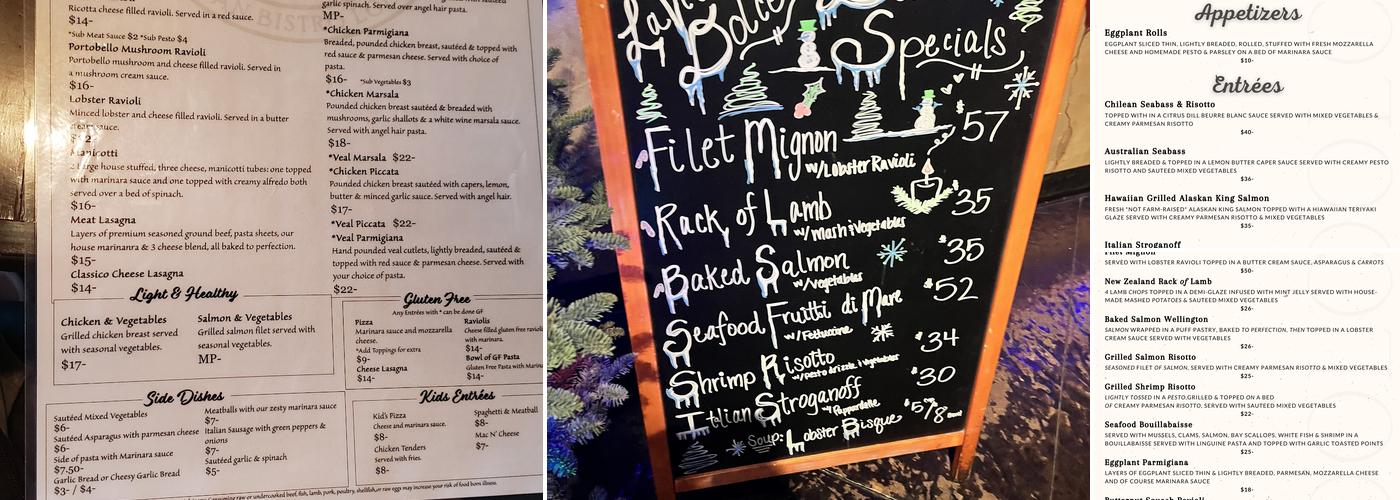 Ricotta cheese filled ravioli. Served in a red sauce.
$14-
*Sub Meat Sauce $2 *Sub Pesto $4
Portobello Mushroom Ravioli
Portobello mushroom and cheese filled ravioli. Served in
a mushroom cream sauce.
$16-
Lobster Ravioli
Minced lobster and cheese filled ravioli. Served in a butter
cream sauce.
Manicotti
large house stuffed, three cheese, manicotti tubes: one topped
with marinara sauce and one topped with creamy alfredo both
served over a bed of spinach.
$16-
Meat Lasagna
Layers of premium seasoned ground beef, pasta sheets, our
house marinanra & 3 cheese blend, all baked to perfection.
$15-
Classico Cheese Lasagna
$14-
garlic spinach. Served over angel hair pasta.
MP-
*Chicken Parmigiana
Breaded, pounded chicken breast, sautéed & topped with
red sauce & parmesan cheese. Served with choice of
pasta.
$16- *Sub Vegetables $3
*Chicken Marsala
Pounded chicken breast sautéed & breaded with
mushrooms, garlic shallots & a white wine marsala sauce.
Served with angel hair pasta.
$18-
*Veal Marsala $22-
*Chicken Piccata
Pounded chicken breast sautéed with capers, lemon,
butter & minced garlic sauce. Served with angel hair.
$17-
*Veal Piccata $22-
*Veal Parmigiana
Hand pounded veal cutlets, lightly breaded, sautéed &
topped with red sauce & parmesan cheese. Served with
your choice of pasta.
$22-
Light & Healthy
Chicken & Vegetables
Grilled chicken breast served
with seasonal vegetables.
$17-
Salmon & Vegetables
Grilled salmon filet served with
seasonal vegetables.
MP-
Gluten Free
Any Entrées with * can be done GF
Pizza
Marinara sauce and mozzarella
cheese.
*Add Toppings for extra
$9-
Cheese Lasagna
$14-
Raviolis
Cheese filled gluten free ravioli
with marinara.
$14-
Bowl of GF Pasta
Gluten Free Pasta with
$14-
Side Dishes
Sautéed Mixed Vegetables
$6-
Sautéed Asparagus with parmesan cheese
$6-
Side of pasta with Marinara sauce
$7.50-
Garlic Bread or Cheesy Garlic Bread
$3- / $4-
Meatballs with our zesty marinara sauce
$7-
Italian Sausage with green peppers &
onions
$7-
Sautéed garlic & spinach
$5-
Kids Entrées
Kid's Pizza
Cheese and marinara sauce.
$8-
Chicken Tenders
Served with fries.
$8-
Spaghetti & Meatball
$8-
Mac N' Cheese
$7-
consuming raw or undercooked beef, fish, lamb, pork, poultry, shellfish, or raw eggs may increase your risk of food born illness.
Dolce
Specials
Filet Mignon 57
w/Lobster Ravioli
Rack of Lamb $35
w/mash & vegetables
Baked Salmon $35
w/vegetables
Seafood Frutti di Mare $52
w/Fettucine
Shrimp Risotto $34
w/pesto drizzle & vegetables
Italian Stroganoff $30
w/Pappardelle
Soup: Lobster Bisque $5/8
Appetizers
Eggplant Rolls
EGGPLANT SLICED THIN, LIGHTLY BREADED, ROLLED, STUFFED WITH FRESH MOZZARELLA
CHEESE AND HOMEMADE PESTO & PARSLEY ON A BED OF MARINARA SAUCE
$10-
Entrées
Chilean Seabass & Risotto
TOPPED WITH IN A CITRUS DILL BEURRE BLANC SAUCE SERVED WITH MIXED VEGETABLES &
CREAMY PARMESAN RISOTTO
$40-
Australian Seabass
LIGHTLY BREADED & TOPPED IN A LEMON BUTTER CAPER SAUCE SERVED WITH CREAMY PESTO
RISOTTO AND SAUTEED MIXED VEGETABLES
$36-
Hawaiian Grilled Alaskan King Salmon
FRESH "NOT FARM-RAISED" ALASKAN KING SALMON TOPPED WITH A HIAWAIIAN TERIYAKI
GLAZE SERVED WITH CREAMY PARMESAN RISOTTO & MIXED VEGETABLES
$35-
Italian Stroganoff
Filet Mignon
SERVED WITH LOBSTER RAVIOLI TOPPED IN A BUTTER CREAM SAUCE, ASPARAGUS & CARROTS
$50-
New Zealand Rack of Lamb
4 LAMB CHOPS TOPPED IN A DEMI-GLAZE INFUSED WITH MINT JELLY SERVED WITH HOUSE-
MADE MASHED POTATOES & SAUTEED MIXED VEGETABLES
$26-
Baked Salmon Wellington
SALMON WRAPPED IN A PUFF PASTRY, BAKED TO PERFECTION, THEN TOPPED IN A LOBSTER
CREAM SAUCE SERVED WITH VEGETABLES
$26-
Grilled Salmon Risotto
SEASONED FILET OF SALMON, SERVED WITH CREAMY PARMESAN RISOTTO & MIXED VEGETABLES
$25-
Grilled Shrimp Risotto
LIGHTLY TOSSED IN A PESTO,GRILLED & TOPPED ON A BED
OF CREAMY PARMESAN RISOTTO, SERVED WITH SAUTEED MIXED VEGETABLES
$22-
Seafood Bouillabaisse
SERVED WITH MUSSELS, CLAMS, SALMON, BAY SCALLOPS, WHITE FISH & SHRIMP IN A
BOUILLABAISSE SERVED WITH LINGUINE PASTA AND TOPPED WITH GARLIC TOASTED POINTS
$25-
Eggplant Parmigiana
LAYERS OF EGGPLANT SLICED THIN & LIGHTLY BREADED, PARMESAN, MOZZARELLA CHEESE
AND OF COURSE MARINARA SAUCE
$18-
Butternut Squash Ravioli